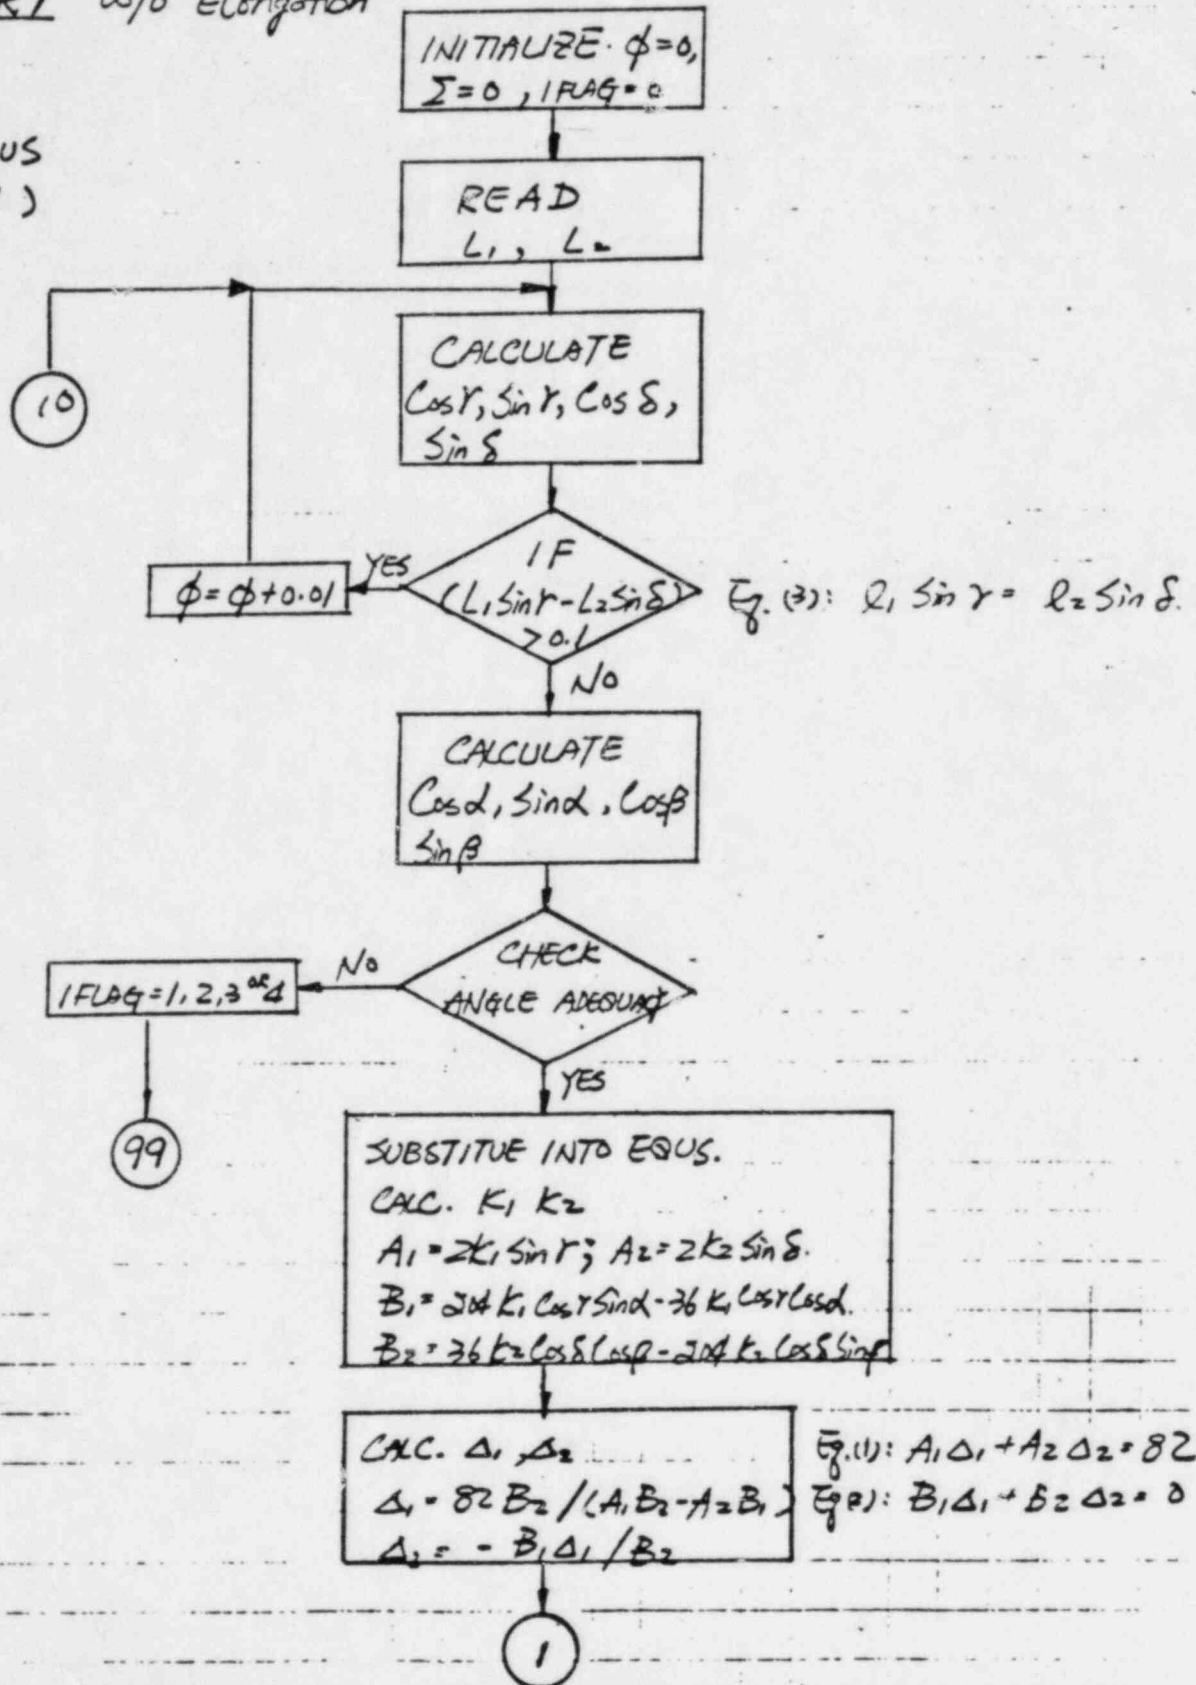 w/o Elongation
INITIALIZE. φ=0,
Σ=0, IFLAG=0
US
)
READ
L₁, L₂
10
CALCULATE
Cosγ, Sinγ, Cosδ,
Sinδ
IF
(L₁Sinγ-L₂Sinδ)
>0.1
YES
φ=φ+0.01
Eq. (3): l₁ Sin γ = l₂ Sin δ.
NO
CALCULATE
Cosα, Sinα, Cosβ
Sinβ
CHECK
ANGLE ADEQUACY
NO
IFLAG=1, 2, 3 or 4
99
YES
SUBSTITUE INTO EQUS.
CALC. K₁ K₂
A₁=2K₁Sinγ; A₂=2K₂Sinδ.
B₁=204K₁CosγSinα-36K₁CosγCosα.
B₂=36K₂CosδCosβ-204K₂CosδSinβ
CALC. Δ₁, Δ₂
Δ₁=82B₂/(A₁B₂-A₂B₁)
Δ₂=-B₁Δ₁/B₂
Eq.(1): A₁Δ₁+A₂Δ₂=82
Eq(2): B₁Δ₁+B₂Δ₂=0
1